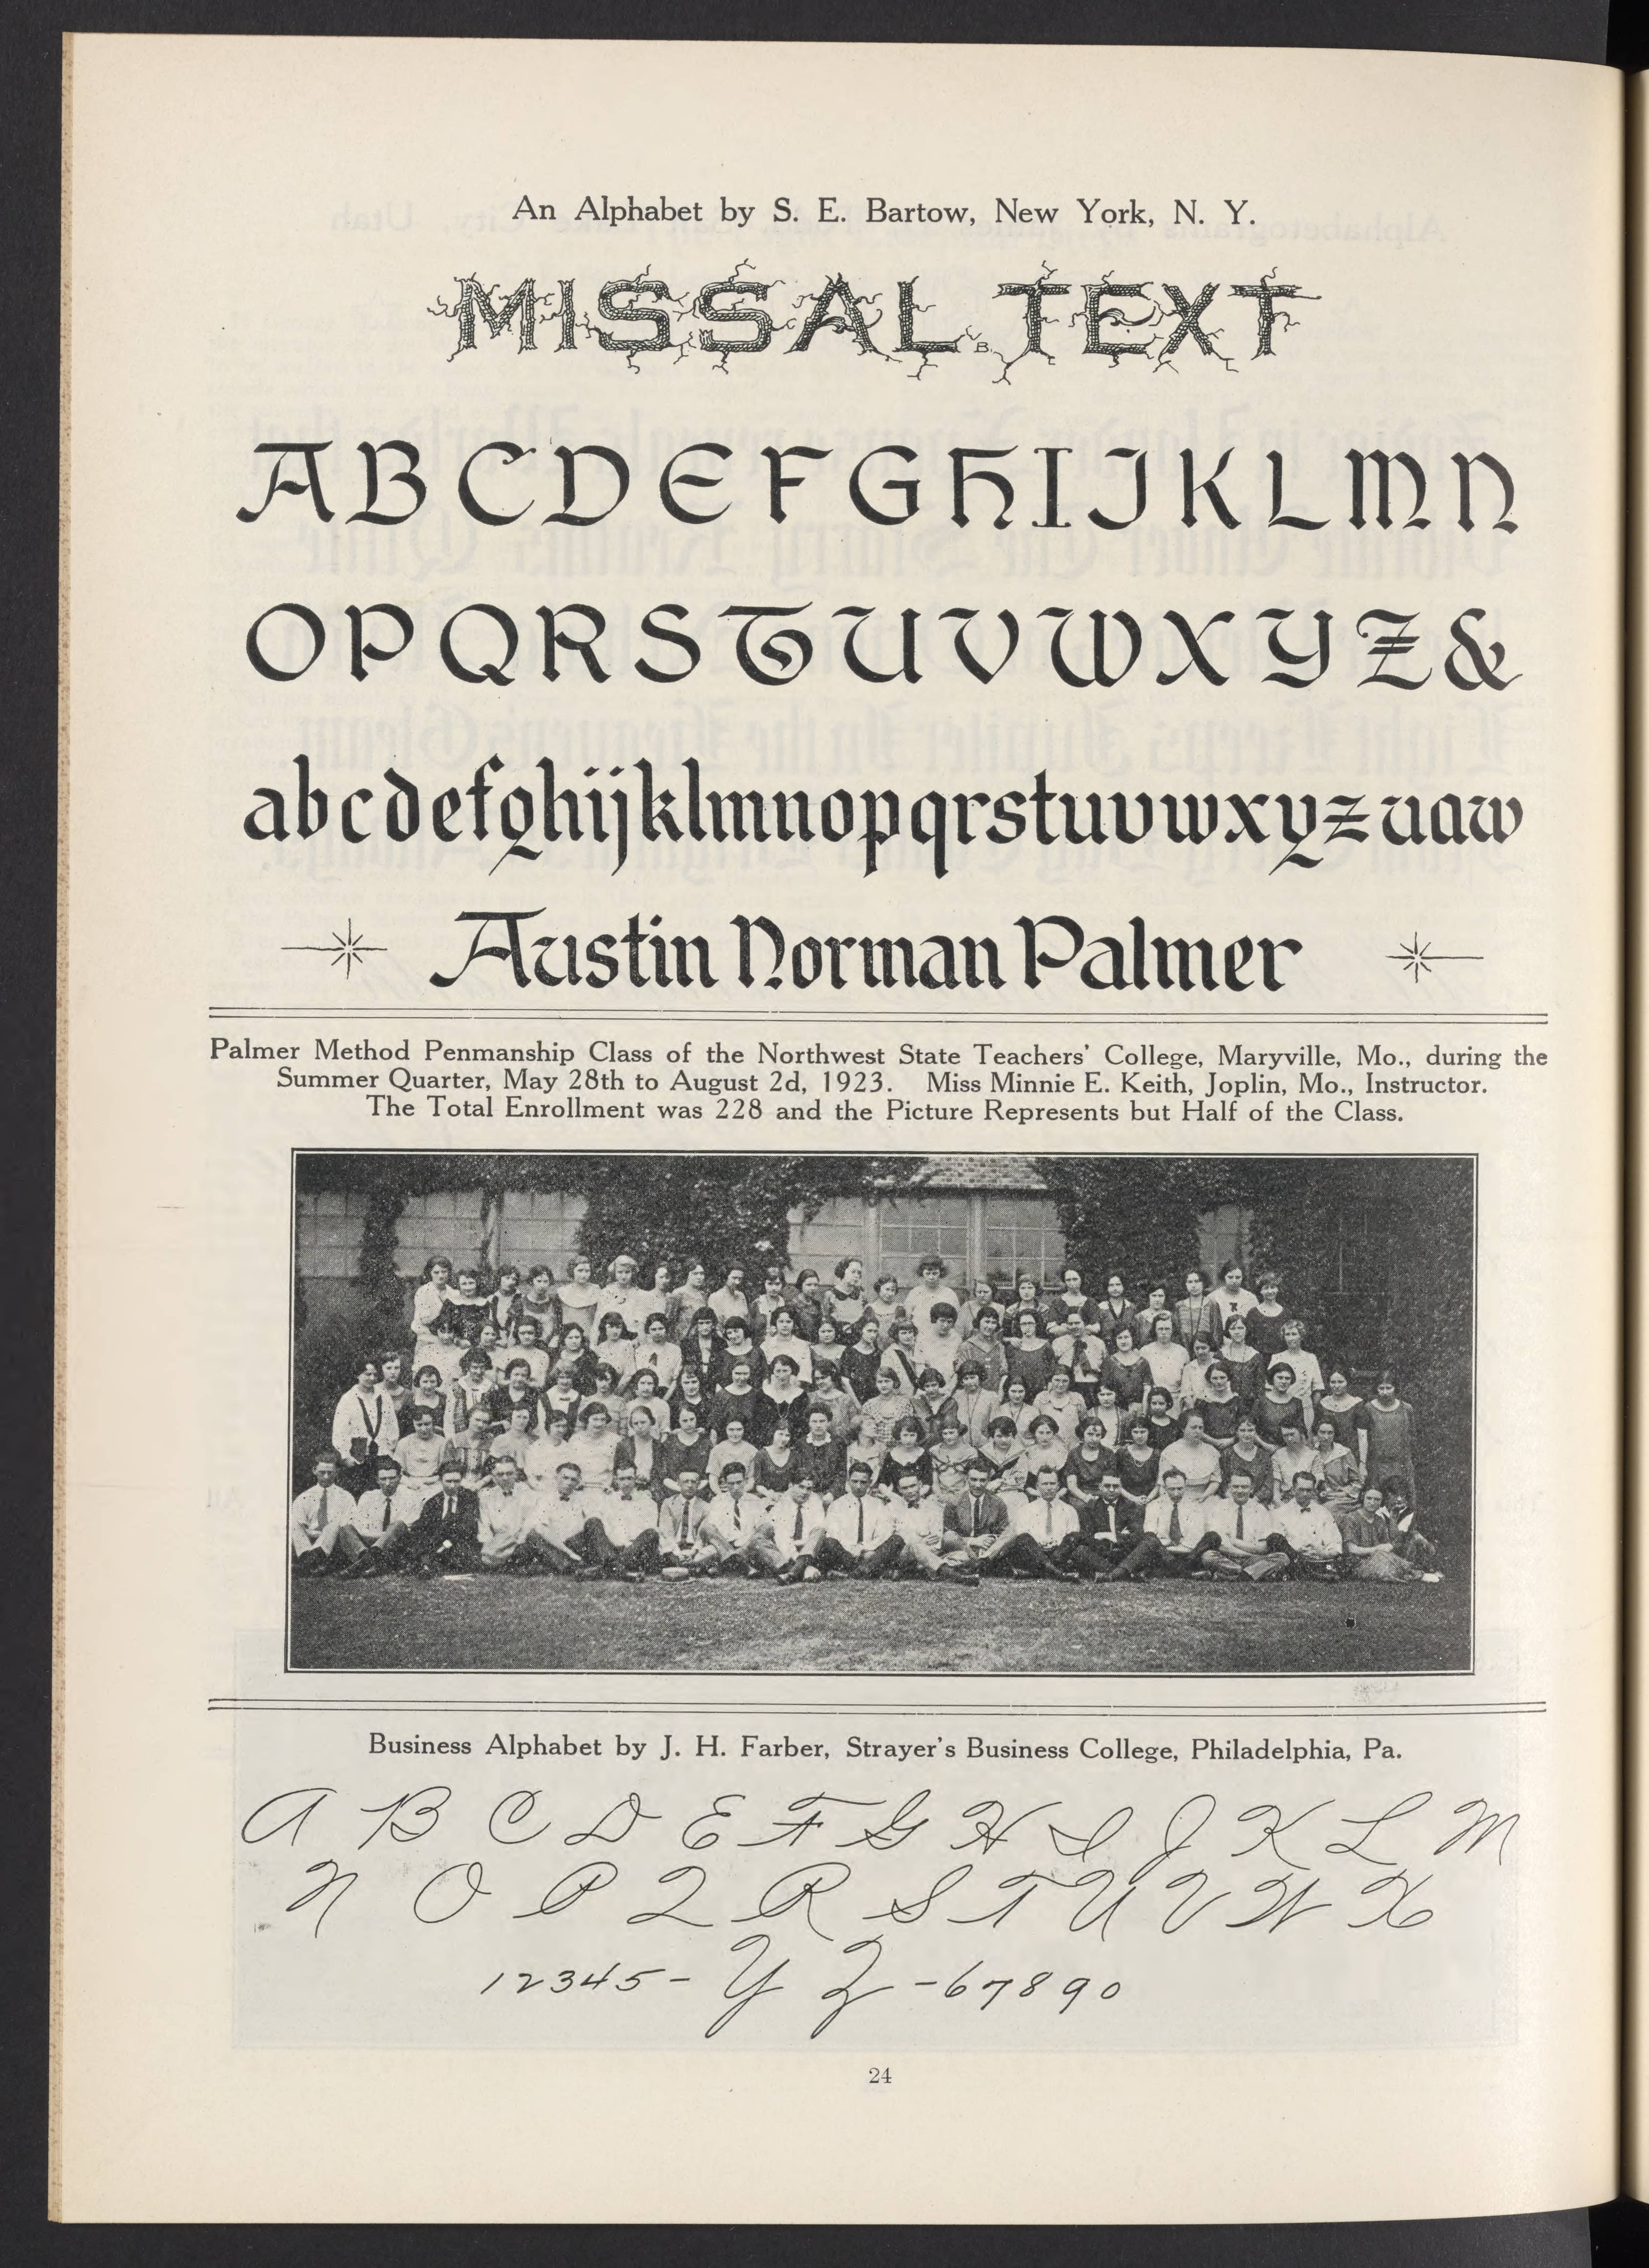 An Alphabet by S. E. Bartow, New York, N. Y.
MISSAL TEXT
B.
A B C D E F G H I J K L M N
O P Q R S T U V W X Y Z &
a b c d e f g h i j k l m n o p q r s t u v w x y z u a w
Austin Norman Palmer
Palmer Method Penmanship Class of the Northwest State Teachers' College, Maryville, Mo., during the
Summer Quarter, May 28th to August 2d, 1923. Miss Minnie E. Keith, Joplin, Mo., Instructor.
The Total Enrollment was 228 and the Picture Represents but Half of the Class.
Business Alphabet by J. H. Farber, Strayer's Business College, Philadelphia, Pa.
A B C D E F G H I J K L M
N O P Q R S T U V W X
12345- Y Z -67890
24